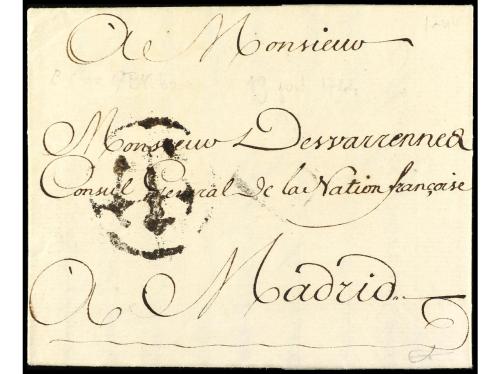 À Monsieur
Monsieur Desvarrennes
Consul General de la Nation françoise
À Madrid